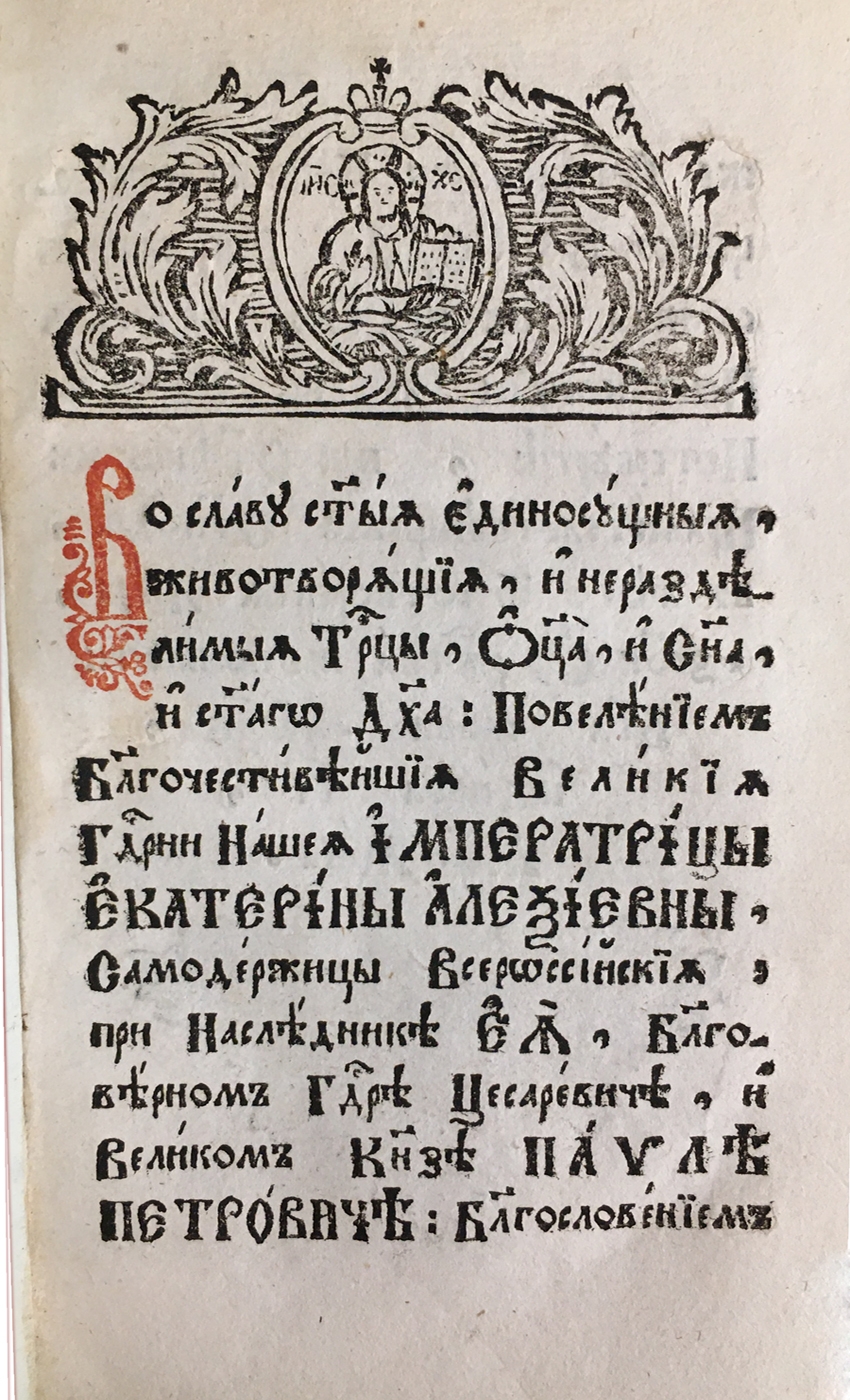 І҆И҃С Х҃С
Во сла́вꙋ ст҃ы́ѧ є҆диносꙋ́щныѧ,
животворѧ́щїѧ, и҆ нераздѣ_
ли́мыѧ Трⷪ҇цы, Ѻ҆ц҃а̀, и҆ Сн҃а,
и҆ ст҃а́гѡ Дх҃а : Повелѣ́нїемъ
Бл҃гочести́вѣйшїѧ Вели́кїѧ
Гдⷭ҇рни На́шеѧ І҆МПЕРАТРІ́ЦЫ
Є҆КАТЕРІ́НЫ А҆ЛЕѮІ́ЕВНЫ,
Самоде́ржицы Всерѡссі́йскїѧ,
при Наслѣ́дникѣ Є҆Ѧ̀, Бл҃го_
вѣ́рномъ Гдⷭ҇рѣ Цесаре́вичѣ, и҆
Вели́комъ Кн҃зѣ ПА́ѴЛѢ
ПЕТРО́ВИЧѢ : Бл҃гослове́нїемъ